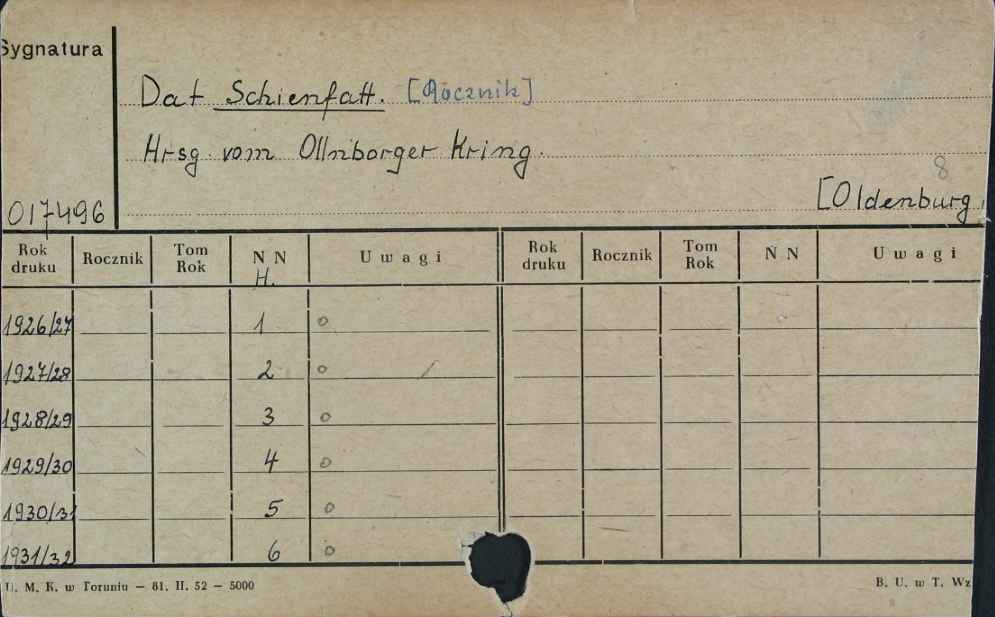 Sygnatura
Dat Schienfatt. [Rocznik]
Hrsg vom Ollnborger Kring.
8
[Oldenburg.
017496
Rok druku Rocznik Tom Rok N N H. Uwagi Rok druku Rocznik Tom Rok N N Uwagi
1926/27 1 o
1927/28 2 o /
1928/29 3 o
1929/30 4 o
1930/31 5 o
1931/32 6 o
U. M. K. w Toruniu — 81. II. 52 — 5000 B. U. w T. Wz